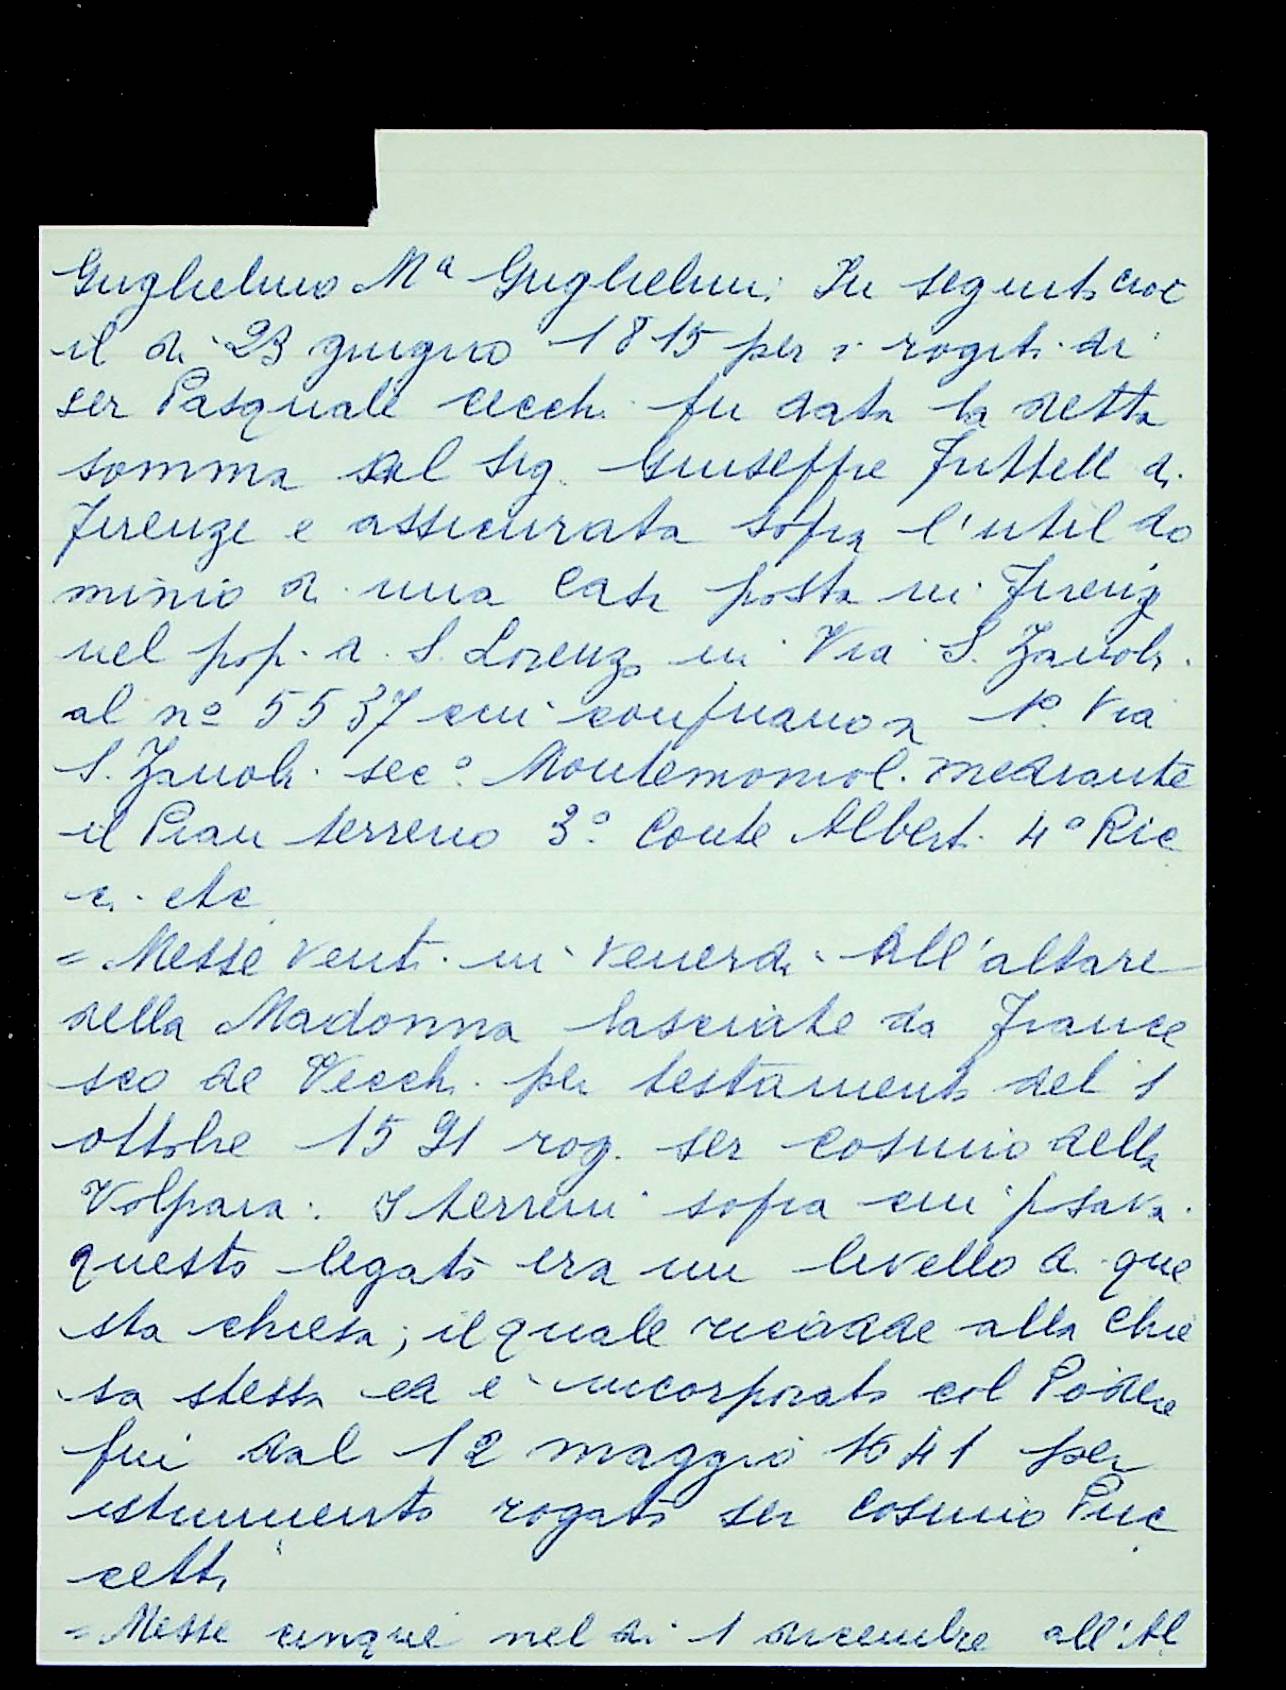 Guglielmo Mª Guglielmi. In seguito cioè
il dì 23 giugno 1815 per i rogiti di
ser Pasquale Cecchi fu data la detta
somma al Sig. Giuseppe di
Firenze e assicurata sopra l'util do
minio di una Casa posta in Firenze
nel pop. di S. Lorenzo in Via S. Zanobi
al nº 5537 cui confinano 1º Via
S. Zanobi secº mediante
il Pian terreno 3º Conte Alberti 4º Ric
ci etc
= Messe venti in venerdì all'altare
della Madonna lasciate da France
sco de Vecchi per testamento del 1
ottobre 1591 rog. ser Cosimo della
Volpaia. I terreni sopra cui posava
questo legato era un livello di que
sta chiesa; il quale ricadde alla Chie
sa stessa ed è incorporato col Podere
fin dal 12 maggio 1641 per
istrumento rogato ser Cosimo Puc
cetti
= Messe cinque nel dì 1 dicembre all'Al